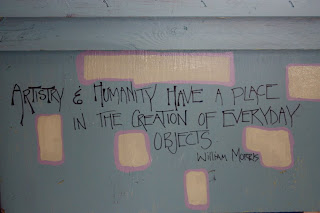 ARTISTRY & HUMANITY HAVE A PLACE
IN THE CREATION OF EVERYDAY
OBJECTS
WILLIAM MORRIS